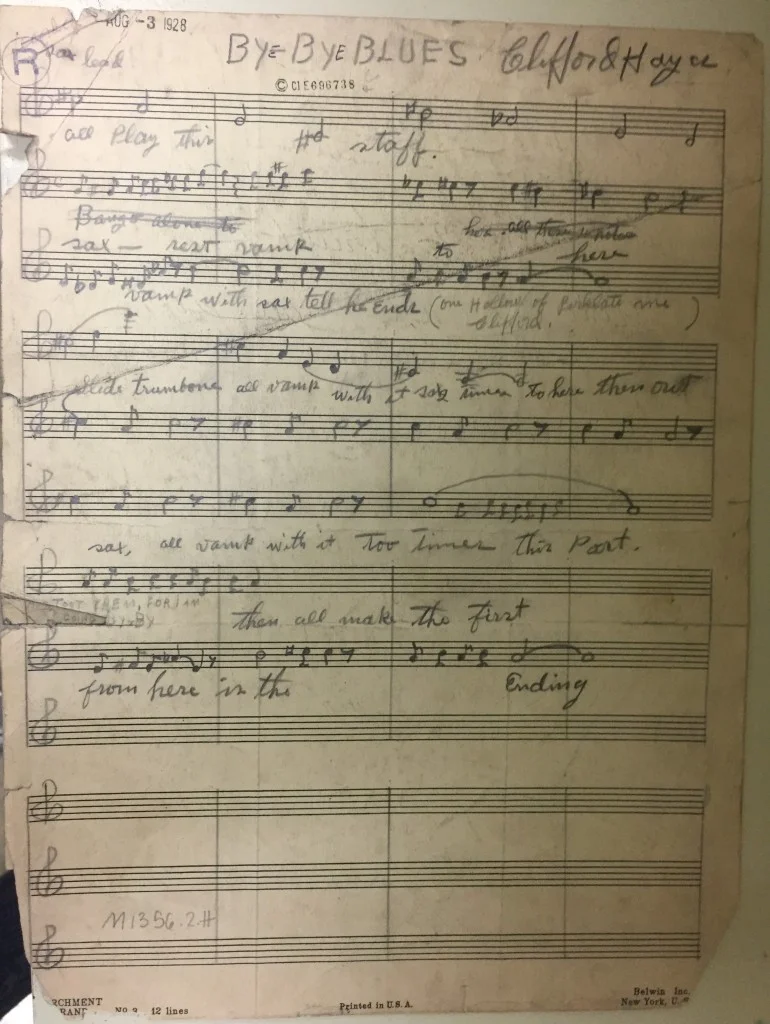 AUG -3 1928
R sax lead BYE-BYE BLUES Clifford Hayes
© CLE696738
all Play this staff.
Banjo alone to
sax — rest vamp to here
vamp with sax tell he Ends (one Hallow of me Clifford. )
slide trumbone all vamp with it sax times to here then out
sax, all vamp with it Too Times this Part.
then all make the first
from here is the Ending
M1356.2.H
RCHMENT
RAND No 9 12 lines
Printed in U.S.A.
Belwin Inc.
New York, U.